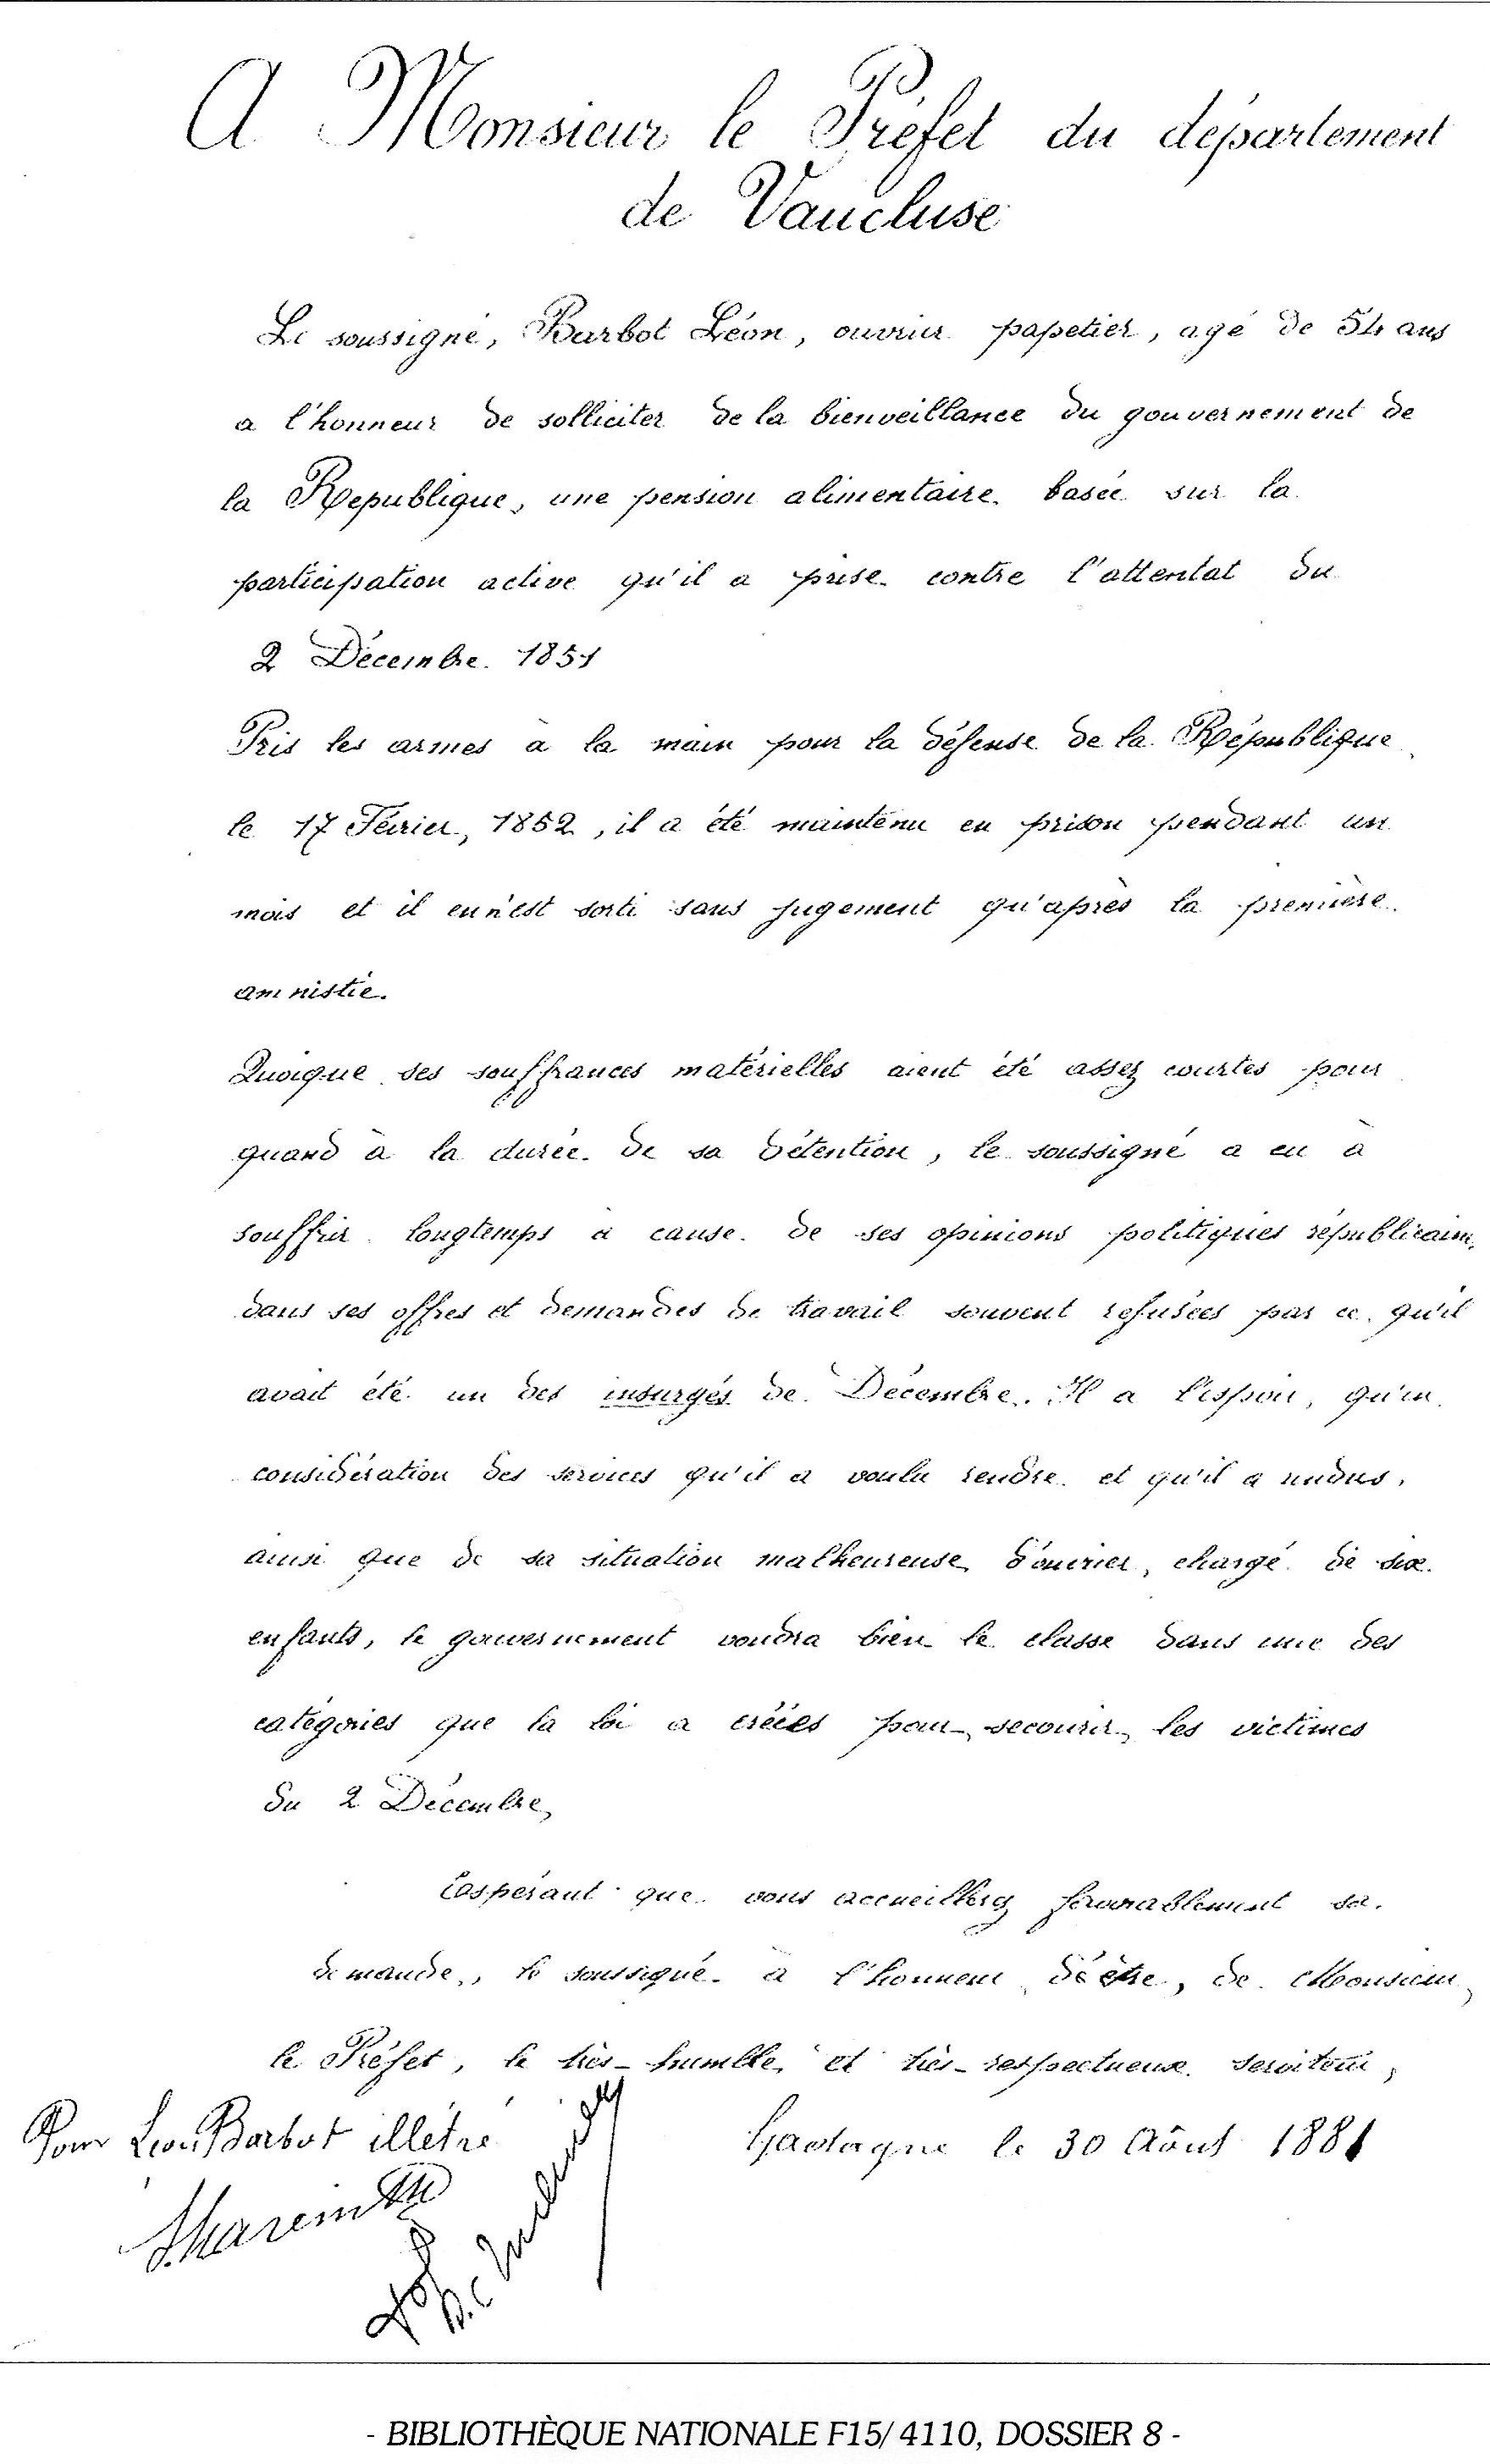 A Monsieur le Préfet du département
de Vaucluse
Le soussigné, Barbot Léon, ouvrier papetier, agé de 54 ans
a l'honneur de solliciter de la bienveillance du gouvernement de
la Republique, une pension alimentaire basée sur la
participation active qu'il a prise contre l'attentat du
2 Décembre 1851
Pris les armes à la main pour la défense de la République
le 17 Février, 1852, il a été maintenu en prison pendant un
mois et il en n'est sorti sans jugement qu'après la première
amnistie.
Quoique ses souffrances matérielles aient été assez courtes pour
quand à la durée de sa détention, le soussigné a eu à
souffrir longtemps à cause de ses opinions politiques républicaine
dans ses offres et demandes de travail souvent refusées par ce qu'il
avait été un des insurgés de Décembre. Il a l'espoir, qu'en
considération des services qu'il a voulu rendre et qu'il a rendus,
ainsi que de sa situation malheureuse d'ouvrier, chargé de six
enfants, le gouvernement voudra bien le classe dans une des
catégories que la loi a créées pour secourir les victimes
du 2 Décembre,
Espérant que vous accueillerez favorablement sa
demande, le soussigné à l'honneur d'être, de Monsieur,
le Préfet, le très-humble et très-respectueux serviteur,
Pour Léon Barbot illétré
Gadagne le 30 Aôut 1881
- BIBLIOTHÈQUE NATIONALE F15/ 4110, DOSSIER 8 -